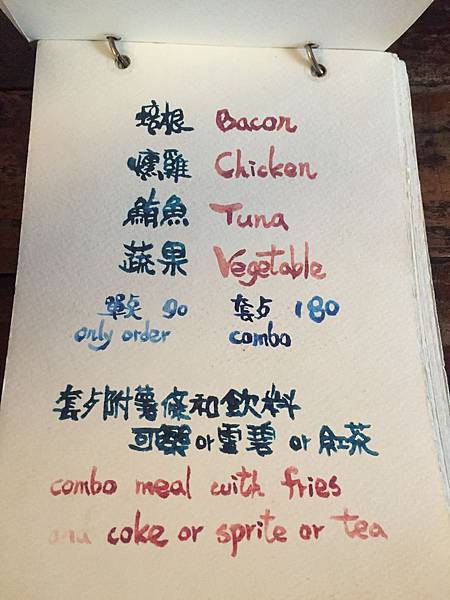 培根 Bacon
燻雞 Chicken
鮪魚 Tuna
蔬果 Vegetable
單点 90 套餐 180
only order combo
套餐附薯條和飲料
可樂or雪碧 or 紅茶
combo meal with fries
and coke or sprite or tea